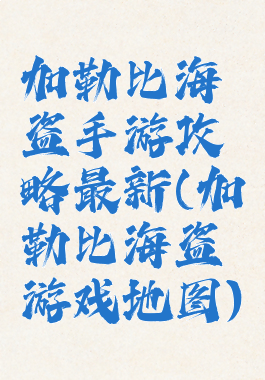 加勒比海
盗手游攻
略最新(加
勒比海盗
游戏地图)